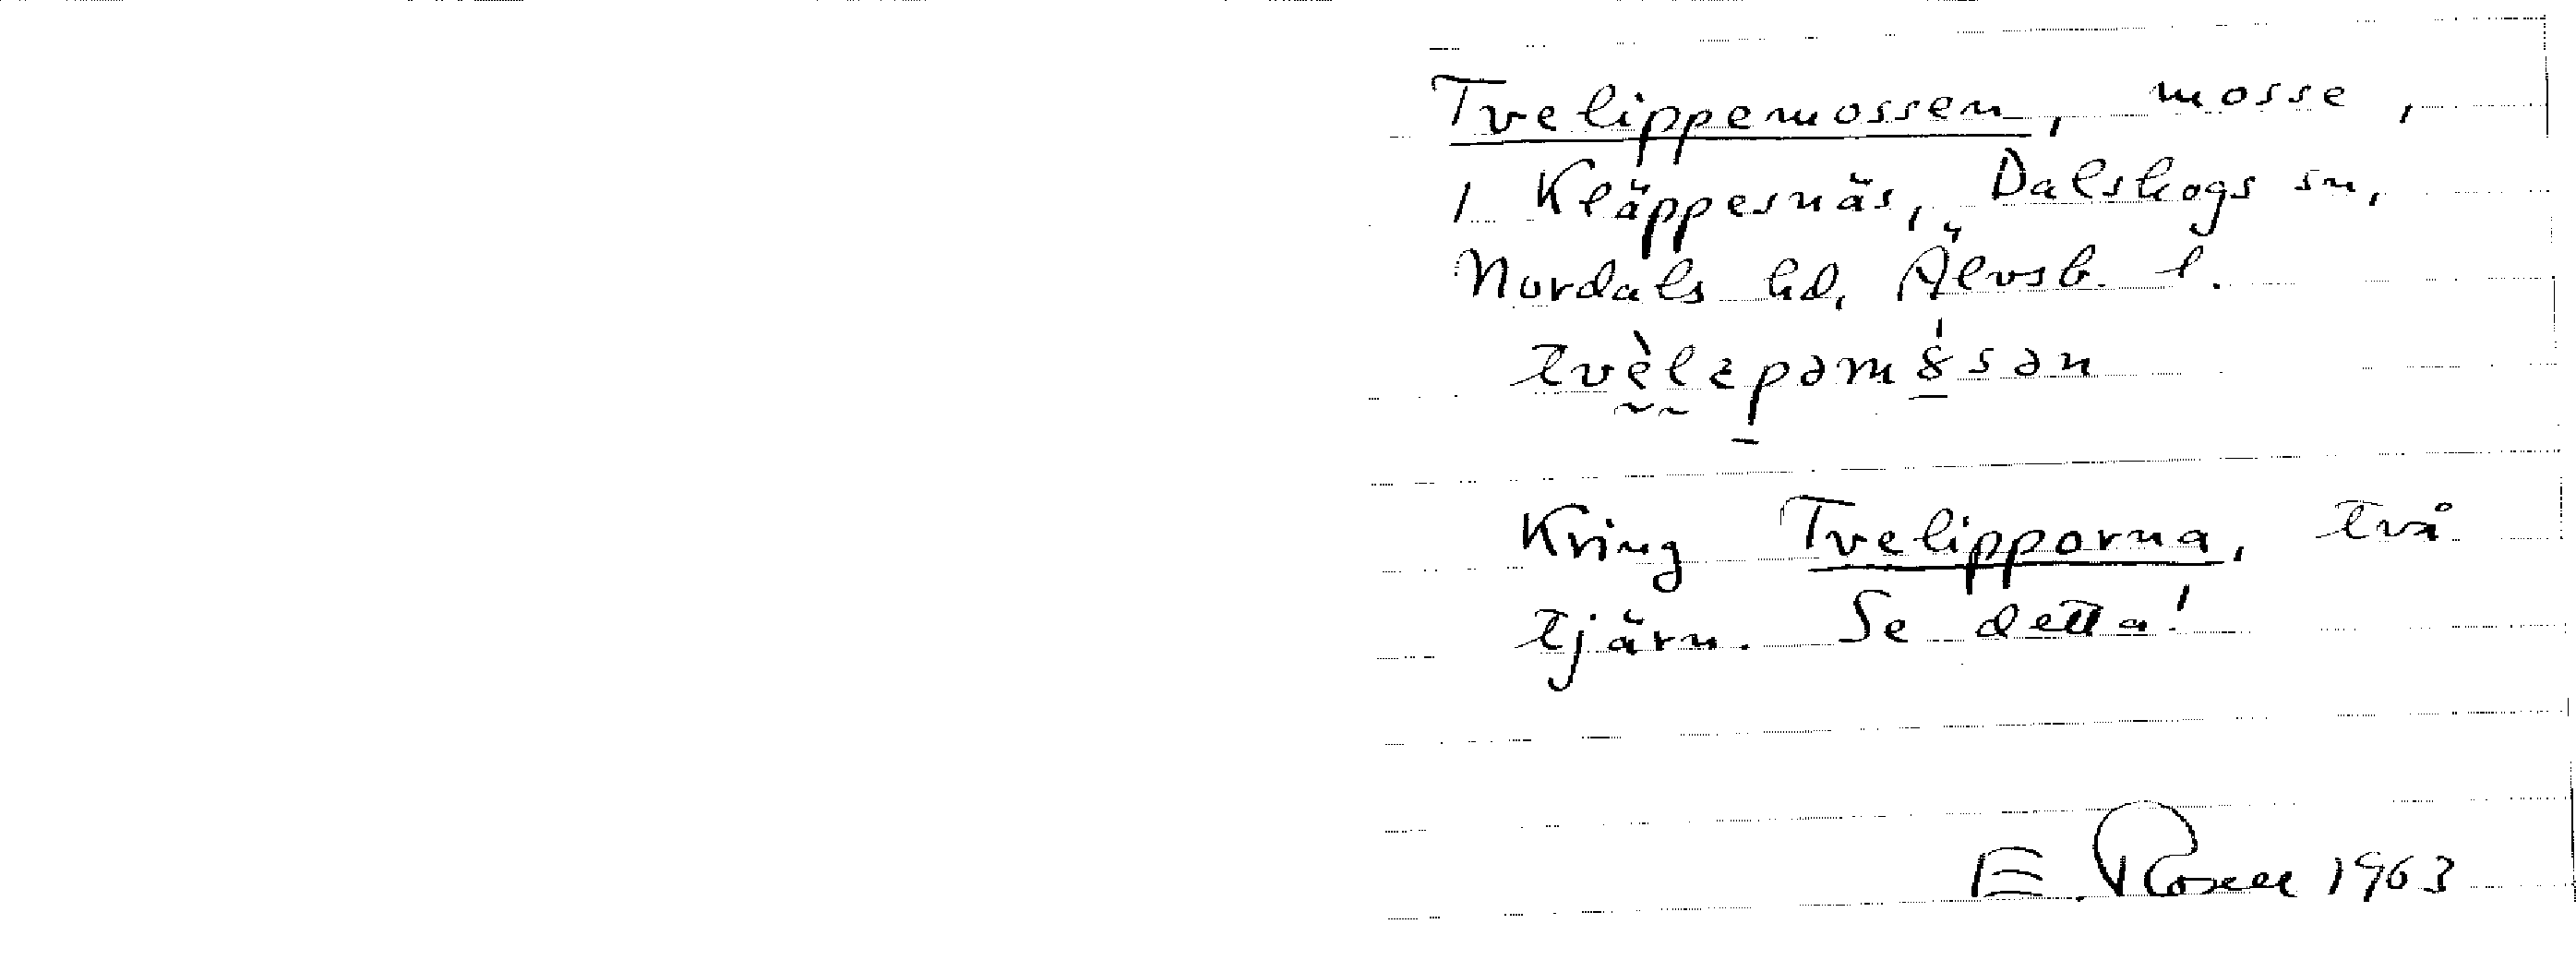 Tvelippemossen, mosse,
i Kläppesnäs, Dalskogs sn,
Nordals hd, Älvsb. l.
tvḛ̀lɛ̰p̠əmȣ̠́sən
Kring Tvelipporna, två
tjärn. Se detta!
E. Rosell 1963